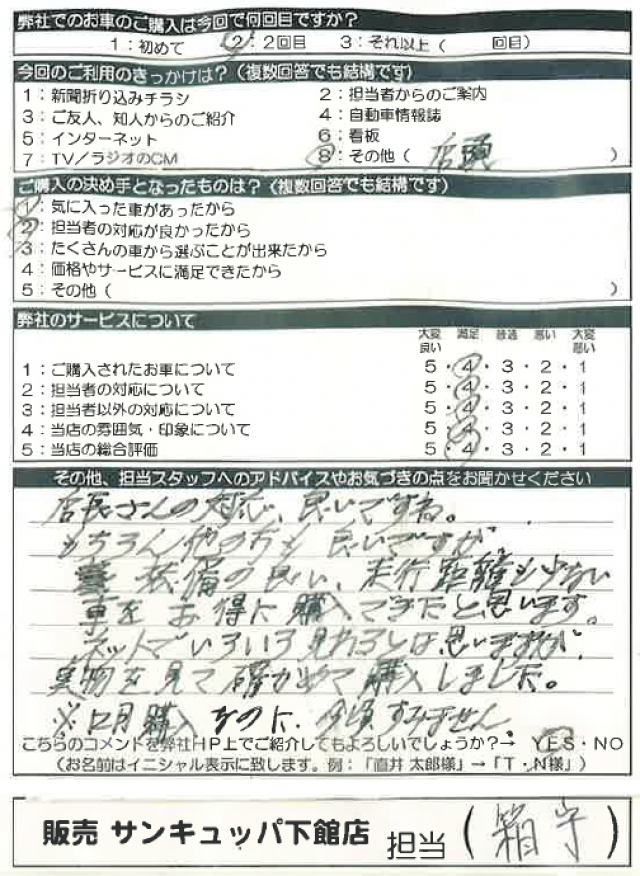 弊社でのお車のご購入は今回で何回目ですか?
1:初めて 2:2回目 3:それ以上( 回目)
今回のご利用のきっかけは?(複数回答でも結構です)
1:新聞折り込みチラシ 2:担当者からのご案内
3:ご友人、知人からのご紹介 4:自動車情報誌
5:インターネット 6:看板
7:TV/ラジオのCM 8:その他( 店頭 )
ご購入の決め手となったものは?(複数回答でも結構です)
1:気に入った車があったから
2:担当者の対応が良かったから
3:たくさんの車から選ぶことが出来たから
4:価格やサービスに満足できたから
5:その他( )
弊社のサービスについて
大変良い 満足 普通 悪い 大変悪い
1:ご購入されたお車について 5・4・3・2・1
2:担当者の対応について 5・4・3・2・1
3:担当者以外の対応について 5・4・3・2・1
4:当店の雰囲気・印象について 5・4・3・2・1
5:当店の総合評価 5・4・3・2・1
その他、担当スタッフへのアドバイスやお気づきの点をお聞かせください
店長さんの対応、良いですね。
もちろん他の方も良いですが
装備の良い、走行距離も少ない
車をお得に購入できたと思います。
ネットでいろいろ見れるとは思いますが、
実物を見て確かめて購入しました。
※12月購入なのに、今頃すみません
こちらのコメントを弊社HP上でご紹介してもよろしいでしょうか?→ YES・NO
(お名前はイニシャル表示に致します。例:「直井 太郎様」→「T・N様」)
販売 サンキュッパ下館店 担当(箱守)